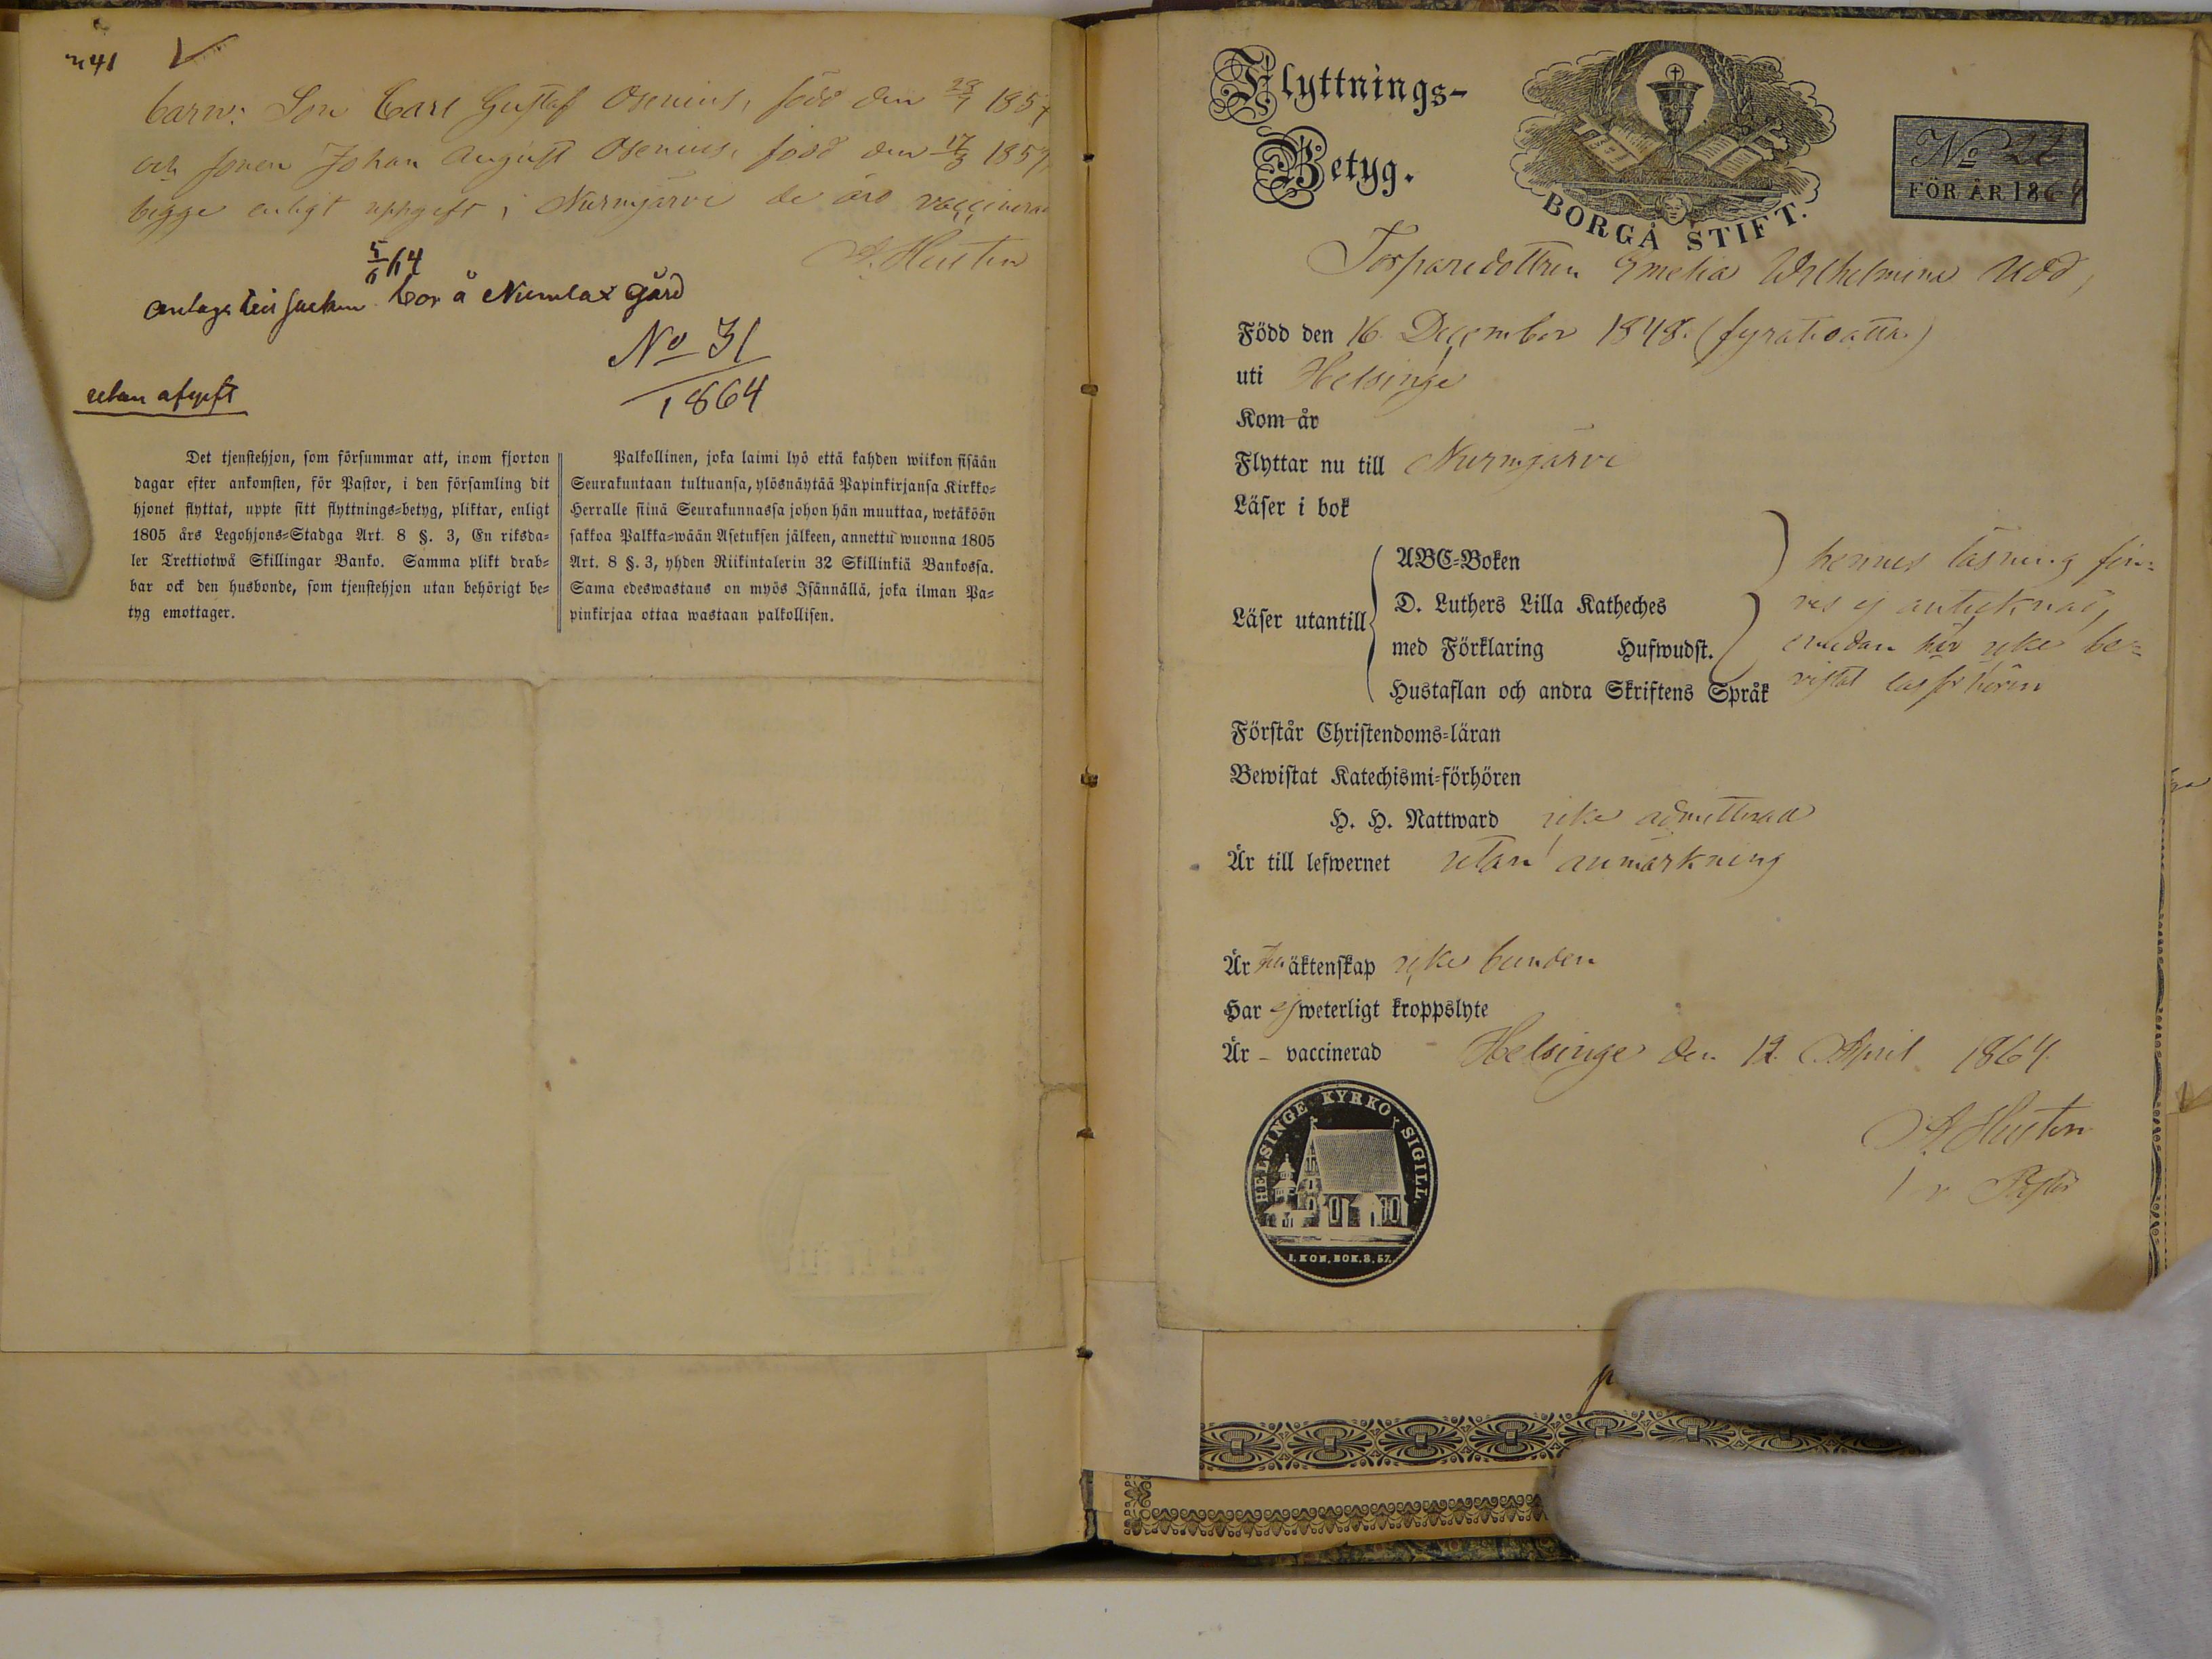 n 41
barn: Son Carl Gustaf Osenius, född den 23/1 1854
och sonen Johan August Osenius, född den 17/3 1857,
begge enligt uppgift i Nurmijärvi de äro vaccinerad
A. Heusten
5/6 64
bor å Numlax gård
No 31
1864
utan afgift
Det tjenstehjon, som försummar att, inom fjorton
dagar efter ankomsten, för Pastor, i den församling dit
hjonet flyttat, uppte sitt flyttnings=betyg, pliktar, enligt
1805 års Legohjons=Stadga Art. 8 §. 3, En riksda=
ler Trettiotwå Skillingar Banko. Samma plikt drab=
bar ock den husbonde, som tjenstehjon utan behörigt be=
tyg emottager.
Palkollinen, joka laimi lyö että kahden wiikon sisään
Seurakuntaan tultuansa, ylösnäytää Papinkirjansa Kirkko=
Herralle siinä Seurakunnassa johon hän muuttaa, wetäköön
sakkoa Palkka=wään Asetuksen jälkeen, annettu wuonna 1805
Art. 8 §. 3, yhden Riikintalerin 32 Skillinkiä Bankossa.
Sama edeswastaus on myös Isännällä, joka ilman Pa=
pinkirjaa ottaa wastaan palkollisen.
Flyttnings-
Betyg.
BORGÅ STIFT.
No 22
FÖR ÅR 1864
Torparedottren Emelia Wilhelmina Udd,
Född den 16 December 1848. (fyratioåtta)
uti Helsinge
Kom år
Flyttar nu till Nurmijärvi
Läser i bok
Läser utantill
ABC=Boken
D. Luthers Lilla Katheches
med Förklaring Hufwudst.
Hustaflan och andra Skriftens Språk
hennes läsning fin=
nes ej antecknad,
emedan hon icke be=
vistat läsförhören
Förstår Christendoms=läran
Bewistat Katechismi=förhören
H. H. Nattward icke admitterad
Är till lefwernet utan anmärkning
Är till äktenskap icke bunden
Har ej weterligt kroppslyte
Är – vaccinerad Helsinge den 12 April 1864
A. Heusten
v Pastor
HELSINGE KYRKO SIGILL.
1. KON. BOK. 8. 57.